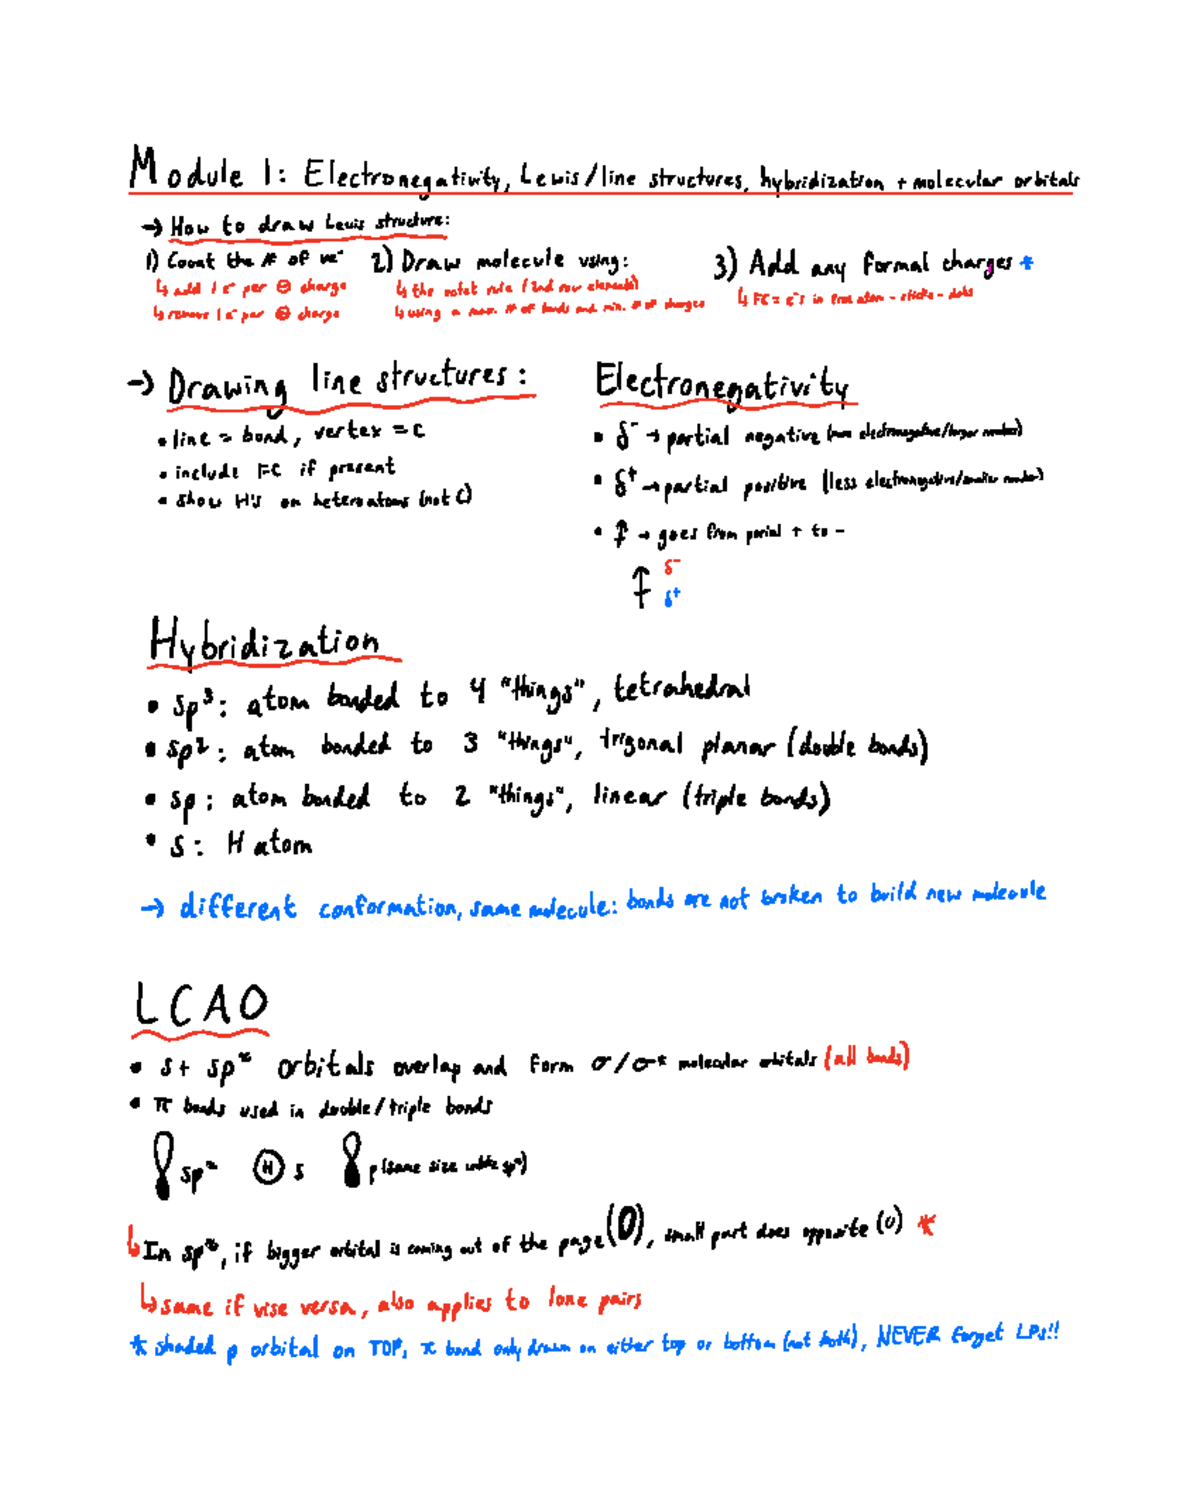 Module 1: Electronegativity, Lewis/line structures, hybridization + molecular orbitals
→ How to draw Lewis structure:
1) Count the # of ve⁻
↳ add 1 e⁻ per ⊖ charge
↳ remove 1 e⁻ per ⊕ charge
2) Draw molecule using:
↳ the octet rule (2nd row elements)
↳ using a max. # of bonds and min. # of charges
3) Add any formal charges *
↳ FC = e⁻s in free atom - sticks - dots
→ Drawing line structures:
• line = bond, vertex = C
• include FC if present
• show H's on heteroatoms (not C)
Electronegativity
• δ⁻ → partial negative (more electronegative/larger number)
• δ⁺ → partial positive (less electronegative/smaller number)
• ↑ → goes from parial + to -
δ⁻
δ⁺
Hybridization
• sp³: atom bonded to 4 "things", tetrahedral
• sp²: atom bonded to 3 "things", trigonal planar (double bonds)
• sp: atom bonded to 2 "things", linear (triple bonds)
• s: H atom
→ different conformation, same molecule: bonds are not broken to build new molecule
LCAO
• s + spˣ orbitals overlap and form σ/σ* molecular orbitals (all bonds)
• π bonds used in double/triple bonds
spˣ H s p (same size unlike spˣ)
↳ In spˣ, if bigger orbital is coming out of the page (0), small part does opposite (0) *
↳ same if vise versa, also applies to lone pairs
* shaded p orbital on TOP, π bond only drawn on either top or bottom (not both), NEVER forget LPs!!